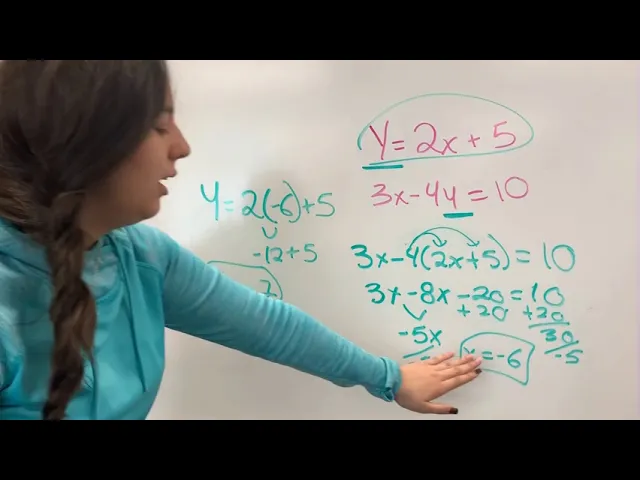 y = 2x + 5
3x - 4y = 10
3x - 4(2x + 5) = 10
3x - 8x - 20 = 10
+20 +20
-5x 30
-5
x = -6
y = 2(-6) + 5
-12 + 5